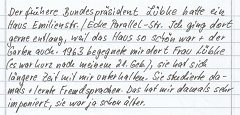 Der frühere Bundespräsident Lübke hatte ein
Haus Emilienstr./Ecke Parallel-Str. Ich ging dort
gerne entlang, weil das Haus so schön war + der
Garten auch. 1963 begegnete mir dort Frau Lübke
(es war kurz nach meinem 21. Geb.), sie hat sich
längere Zeit mit mir unterhalten. Sie studierte da-
mals + lernte Fremdsprachen. Das hat mir damals sehr
imponiert, sie war ja schon älter.